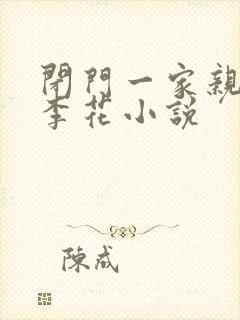 閉門一家親
李花小說
陳咸